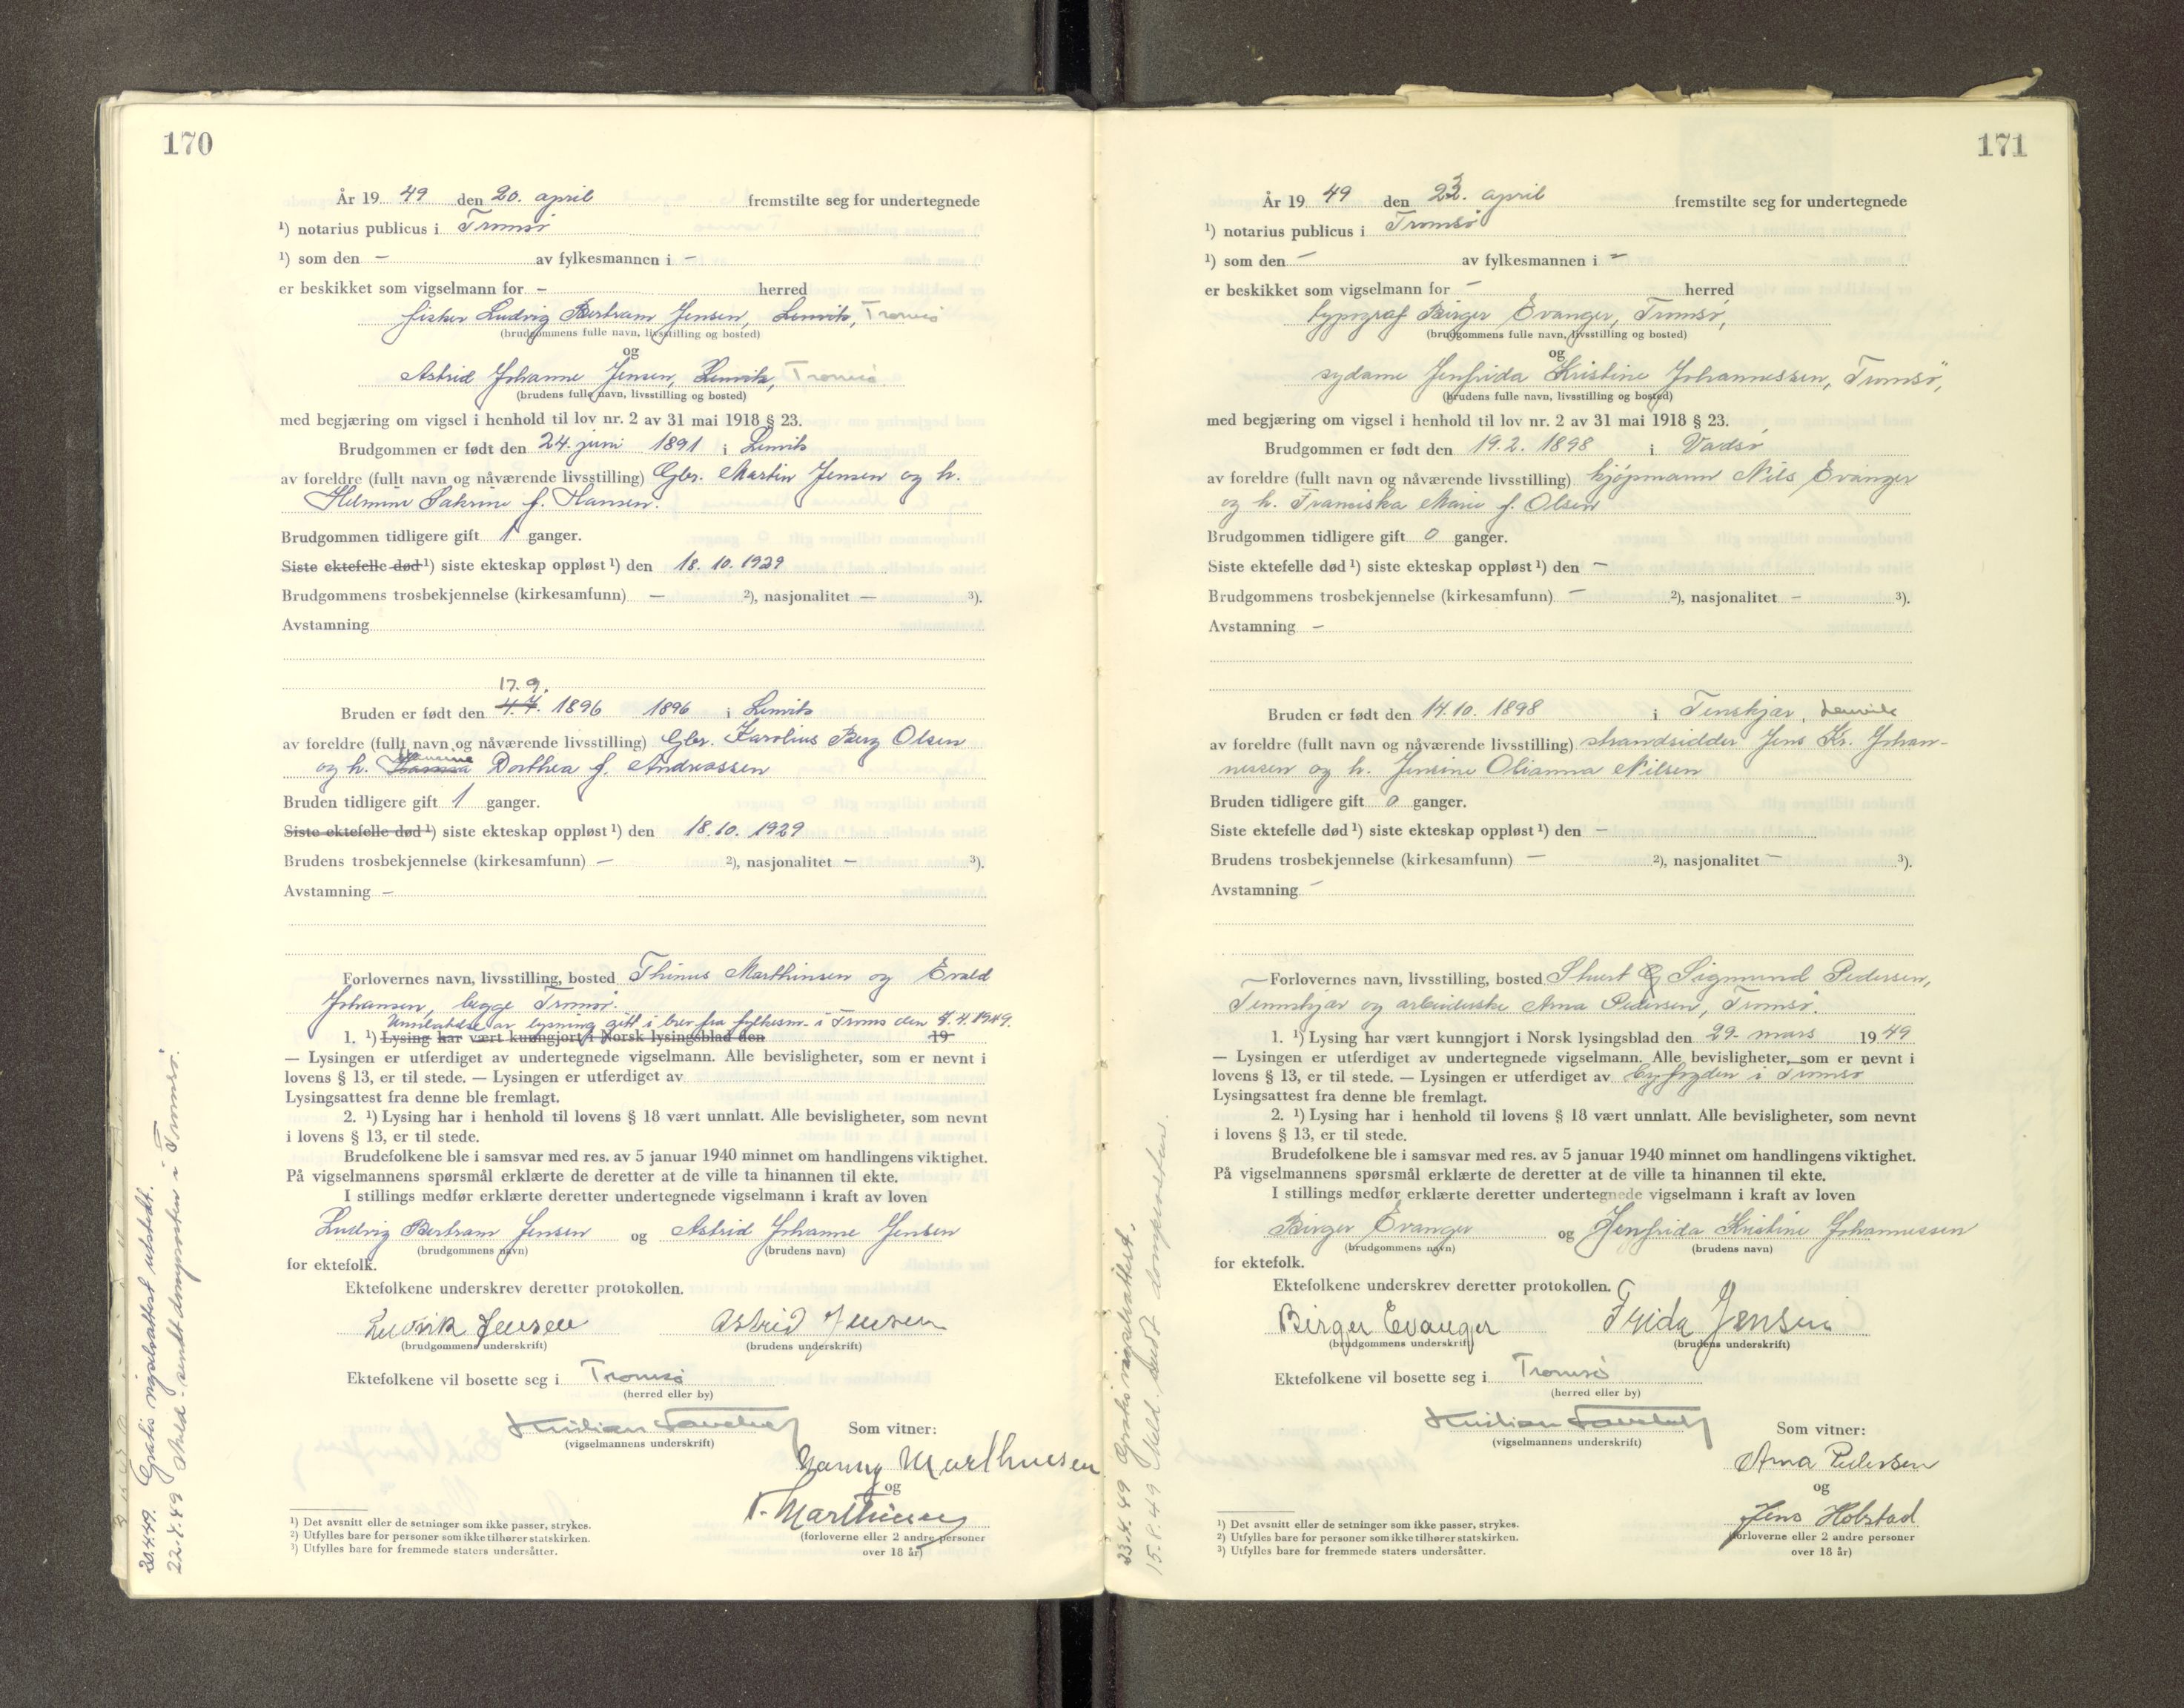 170
År 19 49 den 20. april fremstilte seg for undertegnede
¹) notarius publicus i Tromsø
¹) som den – av fylkesmannen i –
er beskikket som vigselmann for – herred
fisker Ludvig Bertram Jensen, Lenvik, Tromsø
(brudgommens fulle navn, livsstilling og bosted)
og
Astrid Johanne Jensen, Lenvik, Tromsø
(brudens fulle navn, livsstilling og bosted)
med begjæring om vigsel i henhold til lov nr. 2 av 31 mai 1918 § 23.
Brudgommen er født den 24. juni 1891 i Lenvik
av foreldre (fullt navn og nåværende livsstilling) Gbr. Martin Jensen og h.
Helmine Sakrine f. Hansen.
Brudgommen tidligere gift 1 ganger.
Siste ektefelle død ¹) siste ekteskap oppløst ¹) den 18. 10. 1929
Brudgommens trosbekjennelse (kirkesamfunn) — ²), nasjonalitet — ³).
Avstamning
17. 9.
Bruden er født den 4. 7. 1896 1896 i Lenvik
av foreldre (fullt navn og nåværende livsstilling) Gbr. Karolius Berg Olsen
og h. Dorthea f. Andreassen
Bruden tidligere gift 1 ganger.
Siste ektefelle død ¹) siste ekteskap oppløst ¹) den 18. 10. 1929
Brudens trosbekjennelse (kirkesamfunn) — ²), nasjonalitet — ³).
Avstamning –
Forlovernes navn, livsstilling, bosted Thinus Marthinsen og Evald
Johansen, begge Tromsø.
Unnlatelse av lysning gitt i brev fra fylkesm. i Troms den 7. 4. 1949.
1. ¹) Lysing har vært kunngjort i Norsk lysingsblad den 19
— Lysingen er utferdiget av undertegnede vigselmann. Alle bevisligheter, som er nevnt i
lovens § 13, er til stede. — Lysingen er utferdiget av
Lysingsattest fra denne ble fremlagt.
2. ¹) Lysing har i henhold til lovens § 18 vært unnlatt. Alle bevisligheter, som nevnt
i lovens § 13, er til stede.
Brudefolkene ble i samsvar med res. av 5 januar 1940 minnet om handlingens viktighet.
På vigselmannens spørsmål erklærte de deretter at de ville ta hinannen til ekte.
I stillings medfør erklærte deretter undertegnede vigselmann i kraft av loven
Ludvig Bertram Jensen og Astrid Johanne Jensen
(brudgommens navn) (brudens navn)
for ektefolk.
Ektefolkene underskrev deretter protokollen.
Ludvik Jensen Astrid Jensen
(brudgommens underskrift) (brudens underskrift)
Ektefolkene vil bosette seg i Tromsø
(herred eller by)
(vigselmannens underskrift)
Som vitner:
Marthinsen
og
T. Marthinsen
(forloverne eller 2 andre personer
over 18 år)
¹) Det avsnitt eller de setninger som ikke passer, strykes.
²) Utfylles bare for personer som ikke tilhører statskirken.
³) Utfylles bare for fremmede staters undersåtter.
20.4.49. Gratis vigselsattest utstedt.
22.4.49 Meld. sendt domprosten i Tromsø.
171
År 19 49 den 23. april fremstilte seg for undertegnede
¹) notarius publicus i Tromsø
¹) som den – av fylkesmannen i –
er beskikket som vigselmann for – herred
typograf Birger Evanger, Tromsø,
(brudgommens fulle navn, livsstilling og bosted)
og
sydame Jenfrida Kristine Johannessen, Tromsø,
(brudens fulle navn, livsstilling og bosted)
med begjæring om vigsel i henhold til lov nr. 2 av 31 mai 1918 § 23.
Brudgommen er født den 19. 2. 1898 i Vadsø
av foreldre (fullt navn og nåværende livsstilling) kjøpmann Nils Evanger
og h. Franciska Marie f. Olsen
Brudgommen tidligere gift 0 ganger.
Siste ektefelle død ¹) siste ekteskap oppløst ¹) den –
Brudgommens trosbekjennelse (kirkesamfunn) – ²), nasjonalitet – ³).
Avstamning –
Bruden er født den 14. 10. 1898 i Tenskjær, Lenvik
av foreldre (fullt navn og nåværende livsstilling) strandsidder Jens Kr. Johan-
nessen og h. Jensine Olianna Nilsen
Bruden tidligere gift 0 ganger.
Siste ektefelle død ¹) siste ekteskap oppløst ¹) den –
Brudens trosbekjennelse (kirkesamfunn) – ²), nasjonalitet – ³).
Avstamning –
Forlovernes navn, livsstilling, bosted Sigmund Pedersen,
Tennskjær og arbeiderske Arna Pedersen, Tromsø.
1. ¹) Lysing har vært kunngjort i Norsk lysingsblad den 29. mars 19 49
— Lysingen er utferdiget av undertegnede vigselmann. Alle bevisligheter, som er nevnt i
lovens § 13, er til stede. — Lysingen er utferdiget av Byfogden i Tromsø
Lysingsattest fra denne ble fremlagt.
2. ¹) Lysing har i henhold til lovens § 18 vært unnlatt. Alle bevisligheter, som nevnt
i lovens § 13, er til stede.
Brudefolkene ble i samsvar med res. av 5 januar 1940 minnet om handlingens viktighet.
På vigselmannens spørsmål erklærte de deretter at de ville ta hinannen til ekte.
I stillings medfør erklærte deretter undertegnede vigselmann i kraft av loven
Birger Evanger og Jenfrida Kristine Johannessen
(brudgommens navn) (brudens navn)
for ektefolk.
Ektefolkene underskrev deretter protokollen.
Birger Evanger Frida Jensen
(brudgommens underskrift) (brudens underskrift)
Ektefolkene vil bosette seg i Tromsø
(herred eller by)
(vigselmannens underskrift)
Som vitner:
Arna Pedersen
og
Jens Holstad
(forloverne eller 2 andre personer
over 18 år)
¹) Det avsnitt eller de setninger som ikke passer, strykes.
²) Utfylles bare for personer som ikke tilhører statskirken.
³) Utfylles bare for fremmede staters undersåtter.
23.4.49 Gratis vigselsattest.
Meld. sendt domprosten.